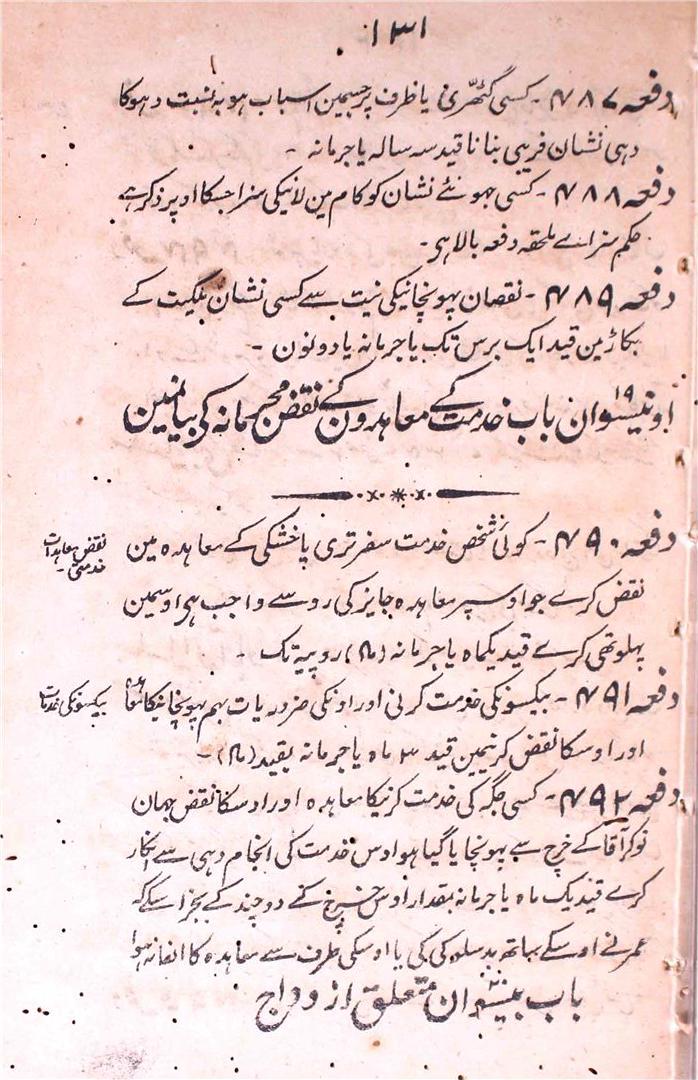 ۱۳۱
دفعہ ۴۸۷ - کسی گٹھری یا ظرف پر جسمین اسباب ہو بہ نسبت دہوکا
دہی نشان فریبی بنانا قید سہ سالہ یا جرمانہ -
دفعہ ۴۸۸ - کسی جہوٹے نشان کو کام مین لانیکی سزا جسکا اوپر ذکر ہے
حکم سزاے ملحقہ دفعہ بالا ہی -
دفعہ ۴۸۹ - نقصان پہونچانیکی نیت سے کسی نشان ملکیت کے
بگاڑ مین قید ایک برس تک یا جرمانہ یا دونون -
اونیسوان ۱۹ باب خدمت کے معاہدون کے نقض مجرمانہ کی بیانمین
دفعہ ۴۹۰ - کوئی شخص خدمت سفر تری یا خشکی کے معاہدہ مین
نقض معاہدات
خدمتی -
نقض کرے جو اوسپر معاہدہ جایز کی رو سے واجب ہی اوسمین
پہلوتھی کرے قید یکماہ یا جرمانہ روپیہ تک -
دفعہ ۴۹۱ - بیکسونکی خدمت کرنی اور اونکی ضروریات بہم پہونچانیکا معاہدہ
بیکسونکی خدمات
اور اوسکا نقض کرنیمین قید ۳ ماہ یا جرمانہ بقید -
دفعہ ۴۹۲ - کسی جگہ کی خدمت کرنیکا معاہدہ اور اوسکا نقض جہان
نوکر آقا کے خرچ سے پہونچایا گیا ہو اوس خدمت کی انجام دہی سے انکار
کرے قید یک ماہ یا جرمانہ بمقدار اوس خرچ کے دوچند کے بجز اسکے کہ
اوسکے ساتھ بدسلوکی کی یا اوسکی طرف سے معاہدہ کا ایفا نہ ہوا
باب بیسوان ۲۰ متعلق ازدواج